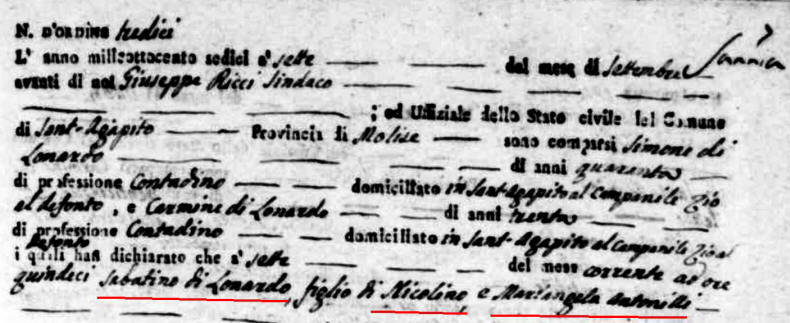 N. D'ORDINE tredici
L' anno millsottocento sedici a' sette del mese di Settembre
avanti di noi Giuseppe Ricci Sindaco
; ed Uffiziale dello Stato civile del Comune
di Sant-Agapito Provincia di Molise sono comparsi Simone di
Lonardo di anni quaranta
di professione Contadino domiciliato in Sant-Agapito al Campanile Zio
al defonto, e Carmine di Lonardo di anni trenta
di professione Contadino domiciliato in Sant-Agapito al Campanile Zio al
Defonto
i quali han dichiarato che a' sette del mese corrente ad ore
quindeci Sabatino di Lonardo, figlio di Nicolino, e Mariangela Antonilli